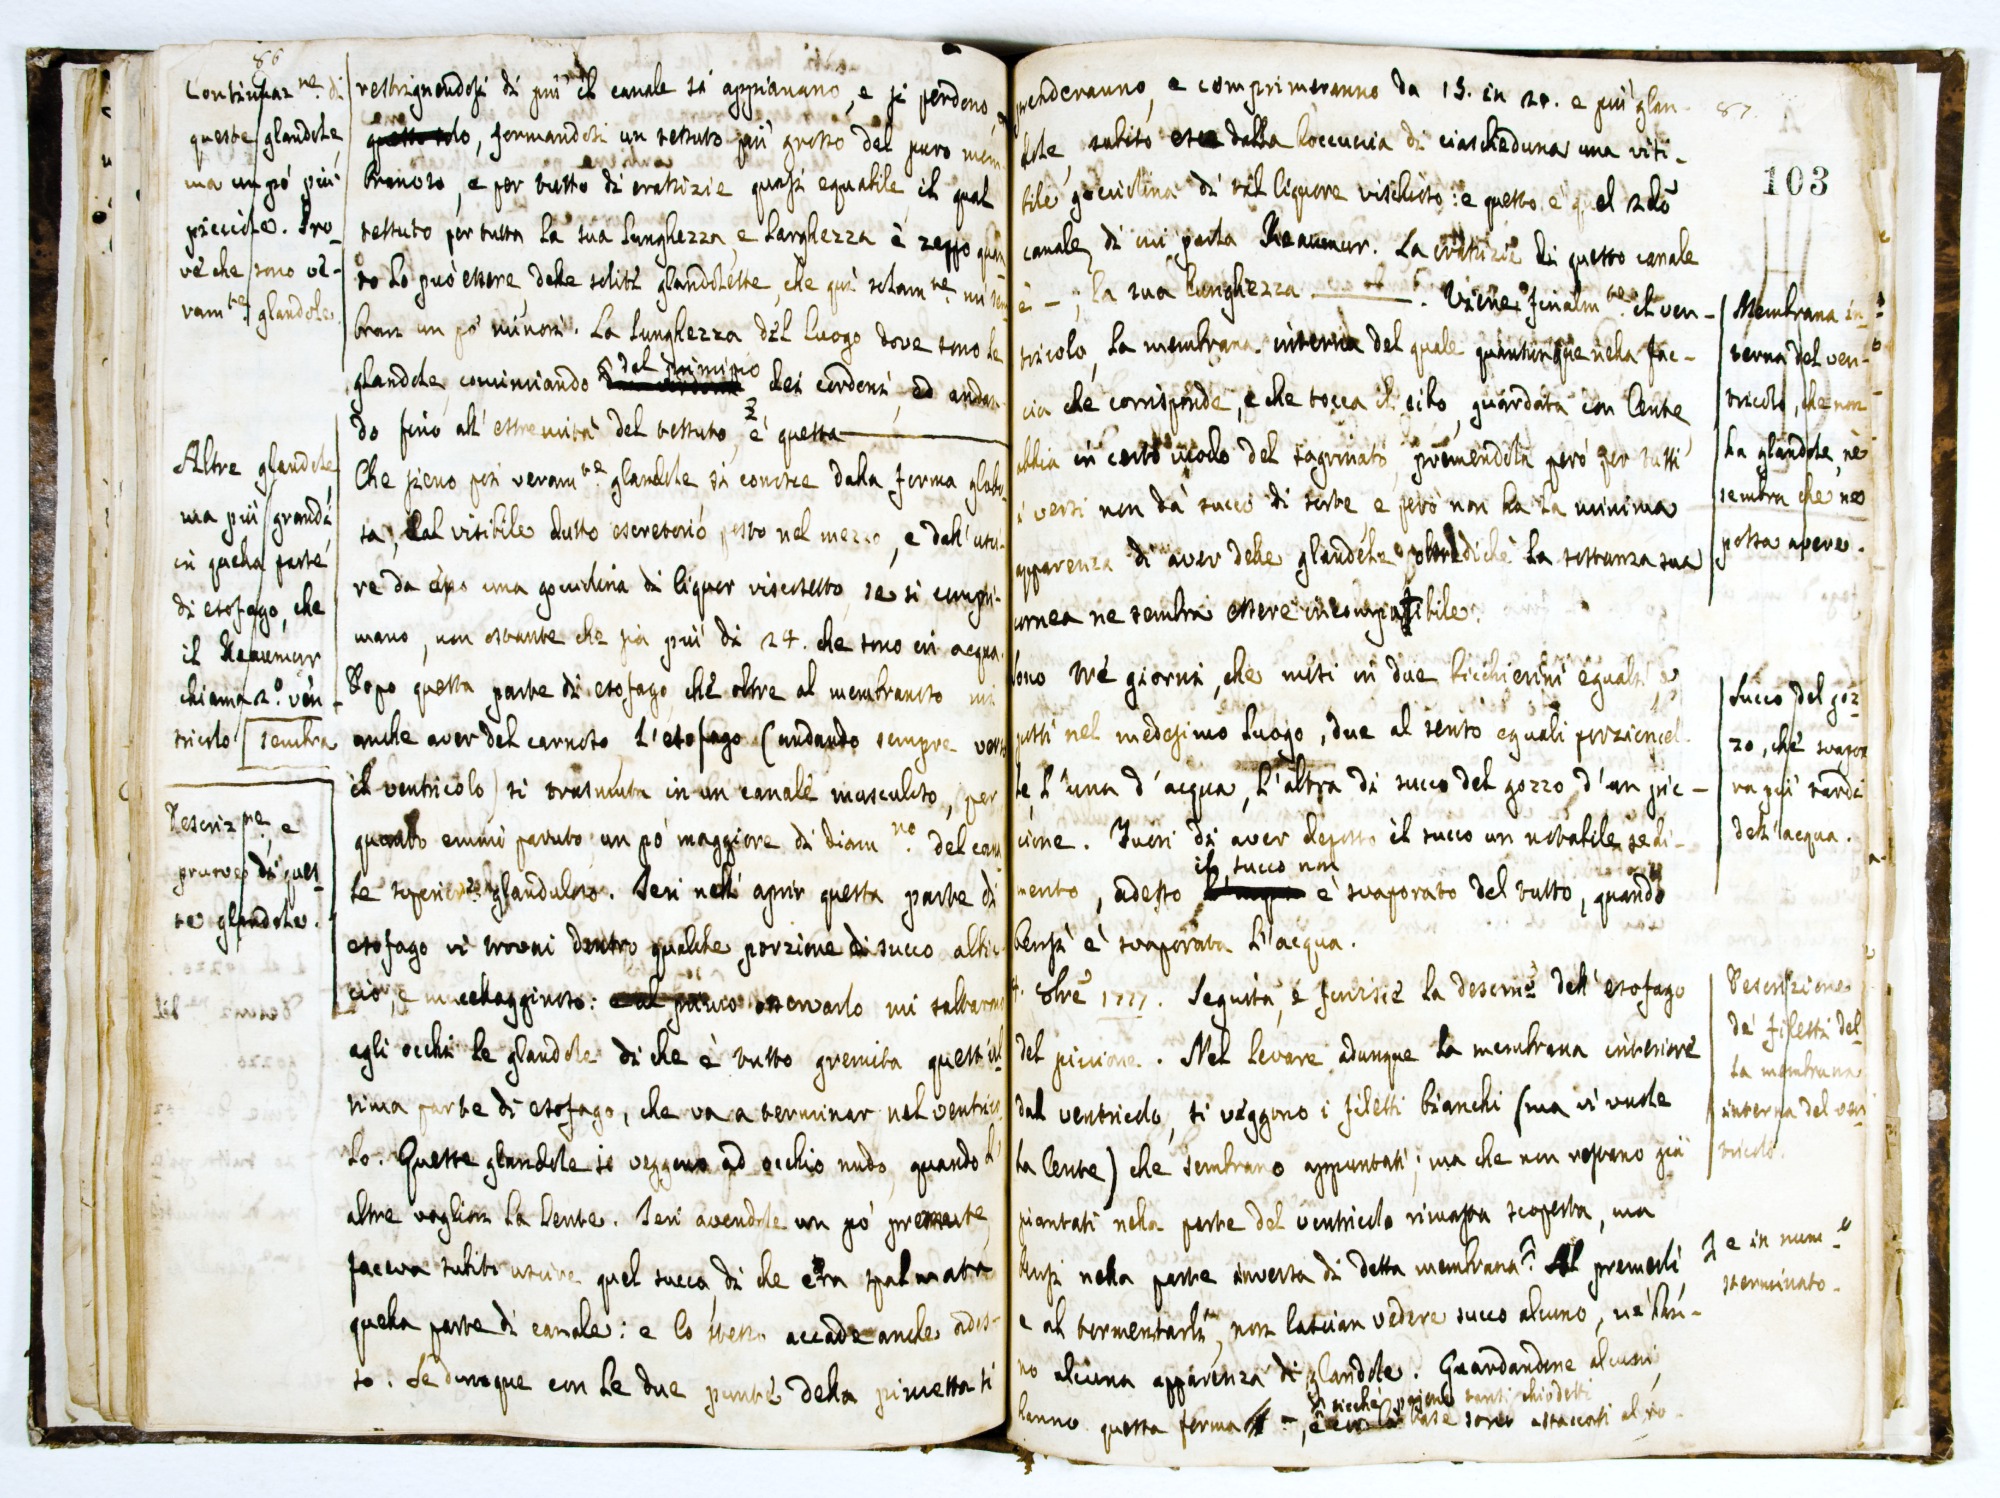 86
Continuaz.ne di
queste glandole,
ma un pó piú
picciole. Pro-
va che sono ve-
ram.te glandole.
Altre glandole,
ma piú grandi,
in quella parte
di esofago, che
il Reaumur
chiama 2.° ven-
tricolo sembra
Descriz.ne, e
pruove di ques-
te glandole.
restrignendosi di piú il canale si appianano, e si perdono,
formandosi un tessuto piú grosso del puro mem
branoso, e per tutto di crassizie quasi equabile, il qual
tessuto per tutta la sua lunghezza, e larghezza è zeppo quan
to lo può essere delle solite glandolette, che quì solam.te mi sem
bran un po' minori. La lunghezza del luogo dove sono le
glandole, cominciando dal principio dei cordoni, ed andan
do fino all' estremità del tessuto, è questa
Che sieno poi veram.te glandole si conosce dalla forma globo
sa, dal visibile dutto escretorio posto nel mezzo, e dall' usci-
re da esso una gocciolina di liquor viscosetto, se si compri-
mano, non ostante che sia piú di 24. che sono in acqua.
Dopo questa parte di esofago, che oltre al membranoso mi
anche aver del carnoso, l'esofago (andando sempre verso
il ventricolo) si trasmuta in un canale musculoso, per
quanto emmi paruto un po' maggiore di diam.ro del cana
le superior.e glanduloso. Ieri nell' aprir questa parte di
esofago vi trovai dentro qualche porzione di succo albic
cio, e mucellagginoso: osservarlo mi saltarono
agli occhi le glandole di che è tutto gremita quest' ul
tima parte di esofago, che va a terminar nel ventrico
lo. Queste glandole si veggono ad occhio nudo, quando l'
altre voglion la lente. Ieri avendole un po' premute,
faceva subito uscire quel succo, di che era spalmata
quella parte di canale: e lo stesso accade anche ades-
so. Se dunque con le due punte della pinzetta si
87.
103
prenderanno, e comprimeranno da 15. in 20. e piú glan-
dole, subito esce dalla boccuccia di ciascheduna una visi-
bile gocciolina di tal liquore vischioso: e questo è quel 2do
canale, di cui parla Reaumur. La crassizie di questo canale
è — , la sua lunghezza ——— . Viene finalm.te il ven-
tricolo, la membrana interna del quale quantunque nella fac-
cia che corrisponde, e che tocca il cibo, guardata con lente
abbia in certo modo del sagrinato, premendola però per tutti
i versi non dà succo di sorte e però non ha la minima
apparenza di aver delle glandole, oltredichè la sostanza sua
cornea ne sembra essere incompatibile.
Sono tré giorni, che misi in due bicchierini eguali, e
posti nel medesimo luogo, due al senso eguali porzioncel-
le, l'una d'acqua, l'altra di succo del gozzo d'un pic-
cione. Fuori di aver deposto il succo un notabile sedi-
mento, adesso il succo non è svaporato del tutto, quando
bensì è svaporata l'acqua.
4. 8bre 1777. Seguita, e finisce la descriz.e dell' esofago
del piccione. Nel levare adunque la membrana interiore
dal ventricolo, si veggono i filetti bianchi (ma vi vuole
la lente) che sembrano appuntati; ma che non restano già
piantati nella parte del ventricolo rimasta scoperta, ma
bensì nella parte inversa di detta membrana. Al premerli,
e al tormentarli, non lascian vedere succo alcuno, nè han-
no alcuna apparenza di glandole. Guardandone alcuni,
hanno questa forma sicché paiono tanti chiodetti
base sono attaccati al ro-
Membrana in-
terna del ven-
tricolo, che non
ha glandole, nè
sembra che ne
possa avere.
Succo del goz-
zo, che svapo
ra piú tardi
dell'acqua.
Descrizione
de' filetti del
la membrana
interna del ven
tricolo.
e in num.o
sterminato.